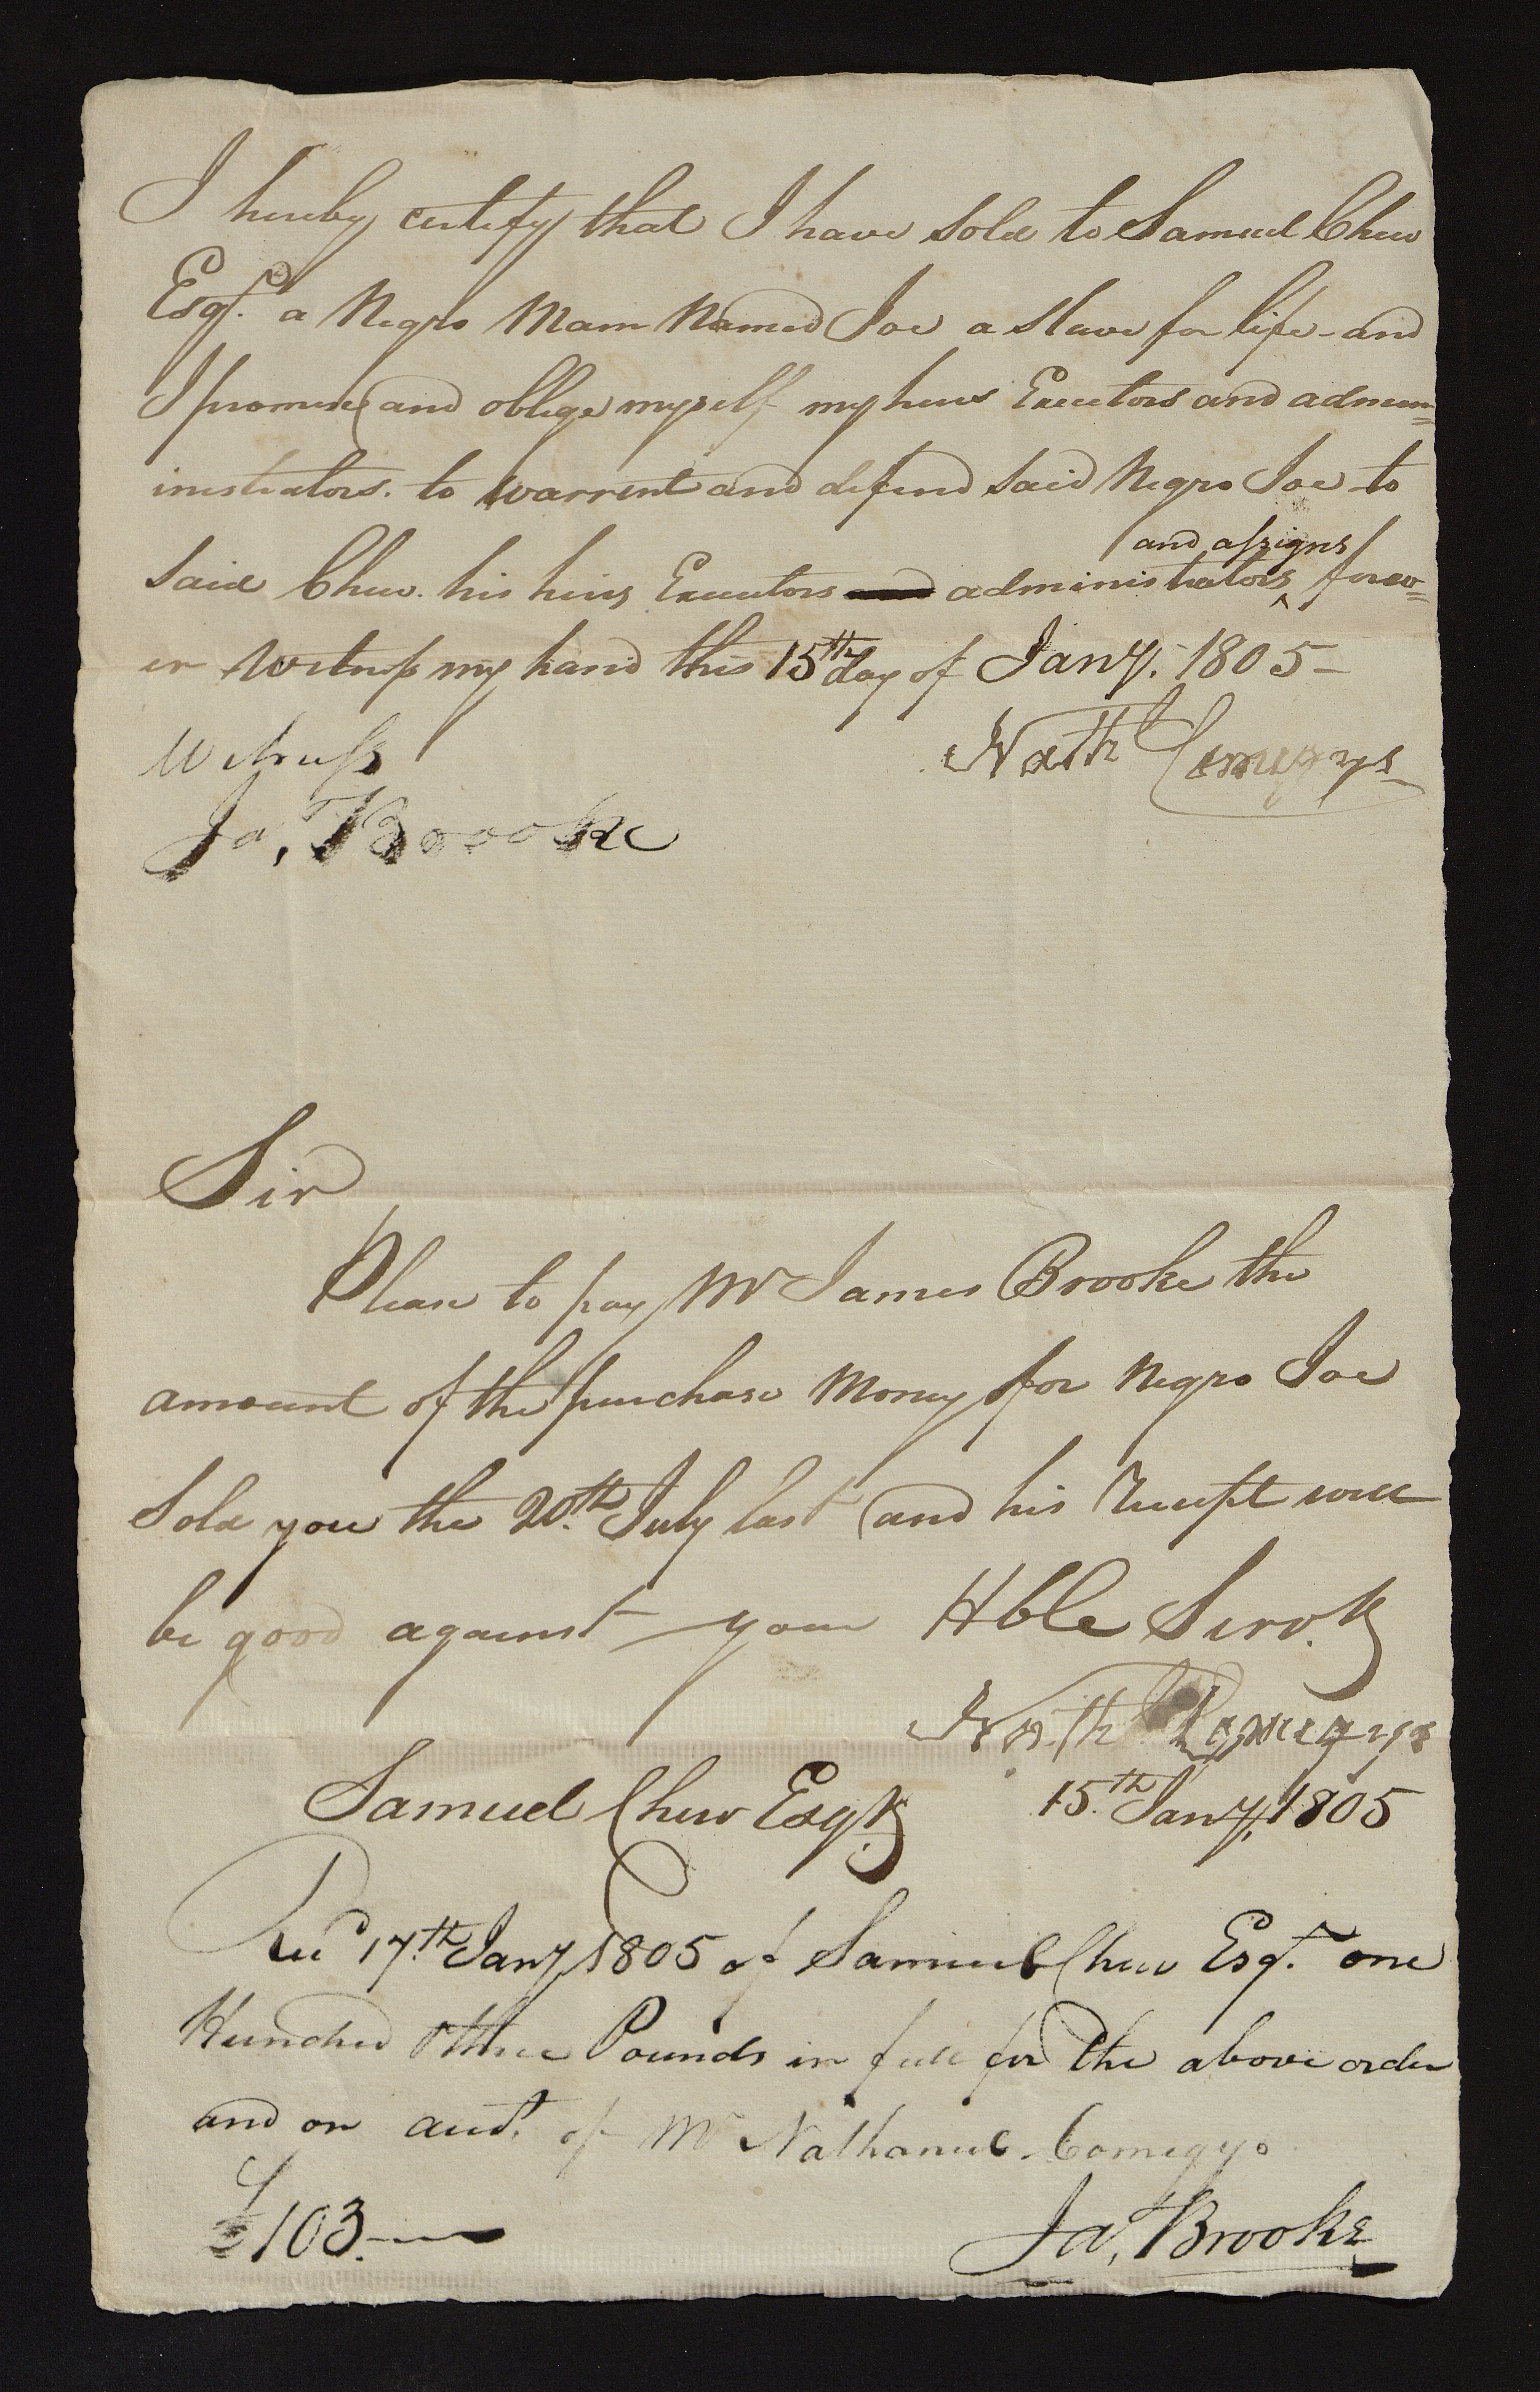 I hereby certify that I have sold to Samuel Chew
Esqr. a Negro Mam Named Joe a slave for life - and
I promise and oblige myself my heirs Executors and admin=
inistrators. to warrent and defend said Negro Joe to
and assigns
said Chew. his heirs Executors and administrators ^ forev=
er Witness my hand this 15th day of Jany. 1805 -
Witness
Nath Comegys
Ja, Brooke
Sir
Please to pay Mr James Brooke the
amount of the purchase Money for Negro Joe
Sold you the 20th. July last and his Receipt will
be good against your Hble Servt.
Nath Comegys
Samuel Chew Esqr.
15.th Jany, 1805
Recd 17.th Jany 1805 of Samuel Chew Esqr. one
Hundred & three Pounds in full for the above order
and on acct. of Mr Nathaniel Comegys
£103.-
Ja, Brooke